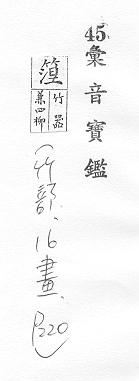 45.彙音寶鑑
簞
竹器
兼四柳
(竹部、16畫、P220)